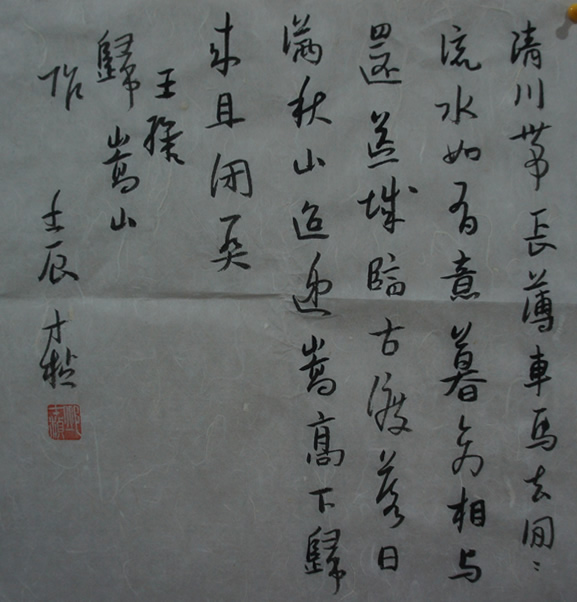 清川帶長薄車馬去閒々
流水如有意暮禽相与
還荒城臨古渡落日
满秋山迢递嵩高下歸
来且闭关
王維
歸嵩山
作 壬辰 才